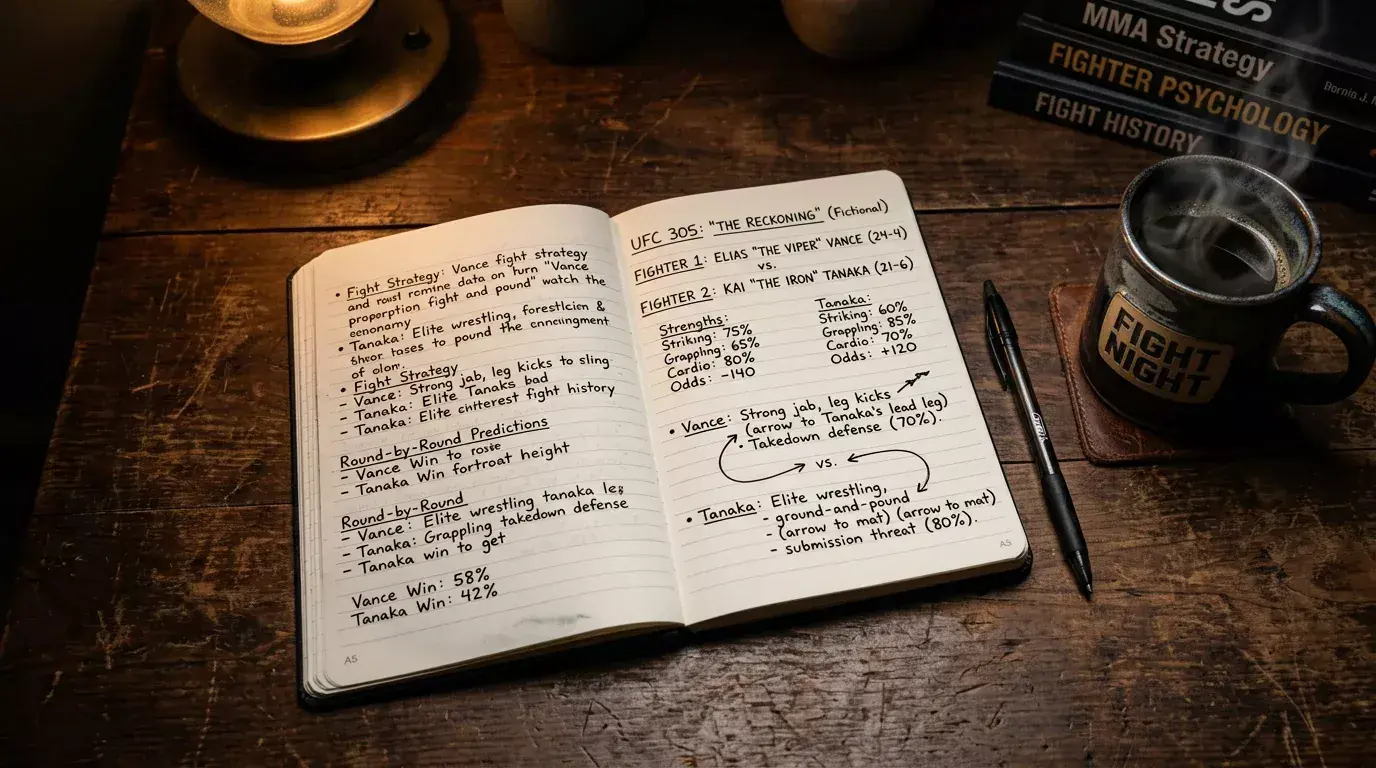 • Fight Strategy: Vance fight strategy
and romine data on turn "Vance
proporption fight and pound" watch the
economy
• Tanaka: Elite wrestling, &
to pound the
of
• Fight Strategy
- Vance: Strong jab, leg kicks to sling
- Tanaka: Elite Tanaks bad
- Tanaka: Elite fight history
Round-by-Round Predictions
- Vance Win to
- Tanaka Win fortroat height
Round-by-Round
- Vance: Elite wrestling tanaka leg
- Tanaka: Grappling takedown defense
- Tanaka win to get
Vance Win: 58%
Tanaka Win: 42%
A5
UFC 305: "THE RECKONING" (Fictional)
FIGHTER 1: ELIAS "THE VIPER" VANCE (24-4)
vs.
FIGHTER 2: KAI "THE IRON" TANAKA (21-6)
Strengths:
Striking: 75%
Grappling: 65%
Cardio: 80%
Odds: -140
Tanaka:
Striking: 60%
Grappling: 85%
Cardio: 70%
Odds: +120
• Vance: Strong jab, leg kicks
(arrow to Tanaka's lead leg)
• Takedown defense (70%).
vs.
• Tanaka: Elite wrestling,
- ground-and-pound
- (arrow to mat) (arrow to mat)
- submission threat (80%).
A5
MMA Strategy
FIGHTER PSYCHOLOGY
FIGHT HISTORY
FIGHT
NIGHT